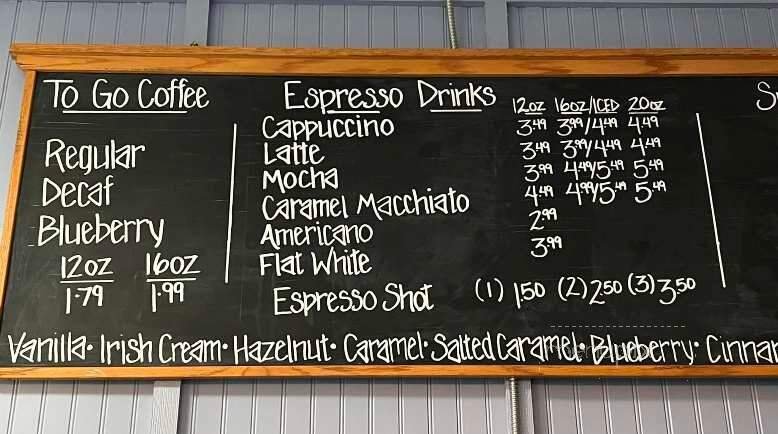 To Go Coffee
Regular
Decaf
Blueberry
12oz 16oz
1.79 1.99
Espresso Drinks 12oz 16oz/ICED 20oz
Cappuccino 3.49 3.99/4.49 4.49
Latte 3.49 3.99/4.49 4.49
Mocha 3.99 4.49/5.49 5.49
Caramel Macchiato 4.49 4.99/5.49 5.49
Americano 2.99
Flat White 3.99
Espresso Shot (1) 1.50 (2) 2.50 (3) 3.50
Vanilla · Irish Cream · Hazelnut · Caramel · Salted Caramel · Blueberry · Cinnar